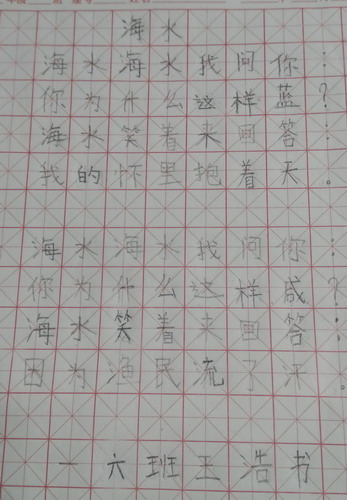 海水
海水海水我问你：
你为什么这样蓝？
海水笑着来回答：
我的怀里抱着天。
海水海水我问你：
你为什么这样咸？
海水笑着来回答：
因为渔民流了汗。
一六班王浩书